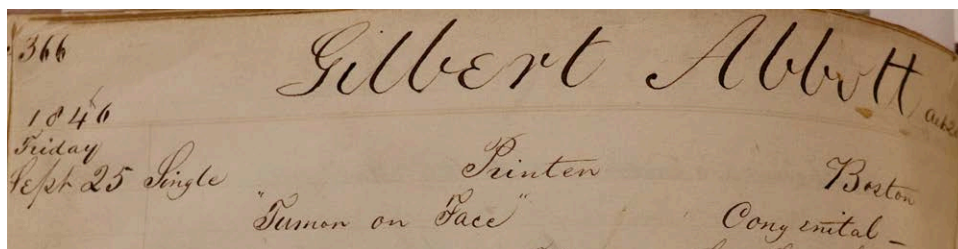 366
Gilbert Abbott
1846
Friday
Sept 25 Single Printer Boston
"Tumor on Face" Congenital –